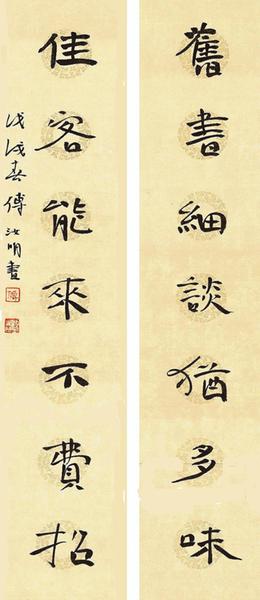 舊書細談猶多味
佳客能來不費招
戊戌春傅汝明書